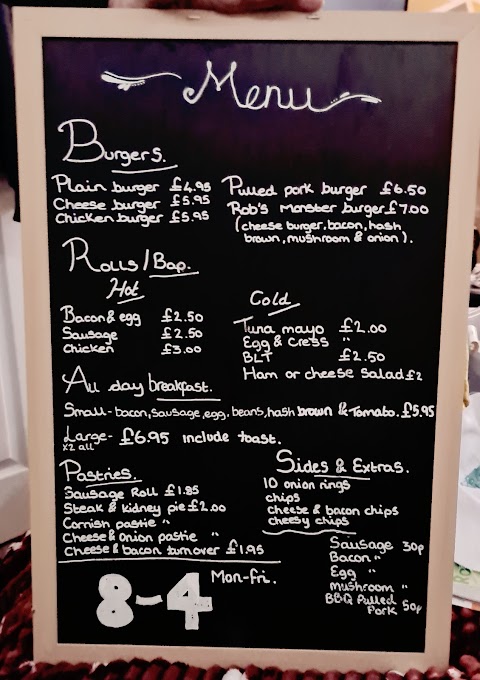 Menu
Burgers.
Plain burger £4.95
Cheese burger £5.95
Chicken burger £5.95
Pulled pork burger £6.50
Rob's Monster burger £7.00
(cheese burger, bacon, hash
brown, mushroom & onion).
Rolls/Bap.
Hot
Bacon & egg £2.50
Sausage £2.50
Chicken £3.00
Cold
Tuna mayo £2.00
Egg & Cress "
BLT £2.50
Ham or cheese salad £2
All day breakfast.
Small - bacon, sausage, egg, beans, hash brown & Tomato. £5.95
Large - £6.95 include toast.
x2 all
Pastries.
Sausage Roll £1.85
Steak & kidney pie £2.00
Cornish pastie "
Cheese & onion pastie "
Cheese & bacon turnover £1.95
Sides & Extras.
10 onion rings
chips
cheese & bacon chips
cheesy chips
Sausage 30p
Bacon "
Egg "
mushroom "
BBQ Pulled
Pork 50p
8-4 Mon-Fri.